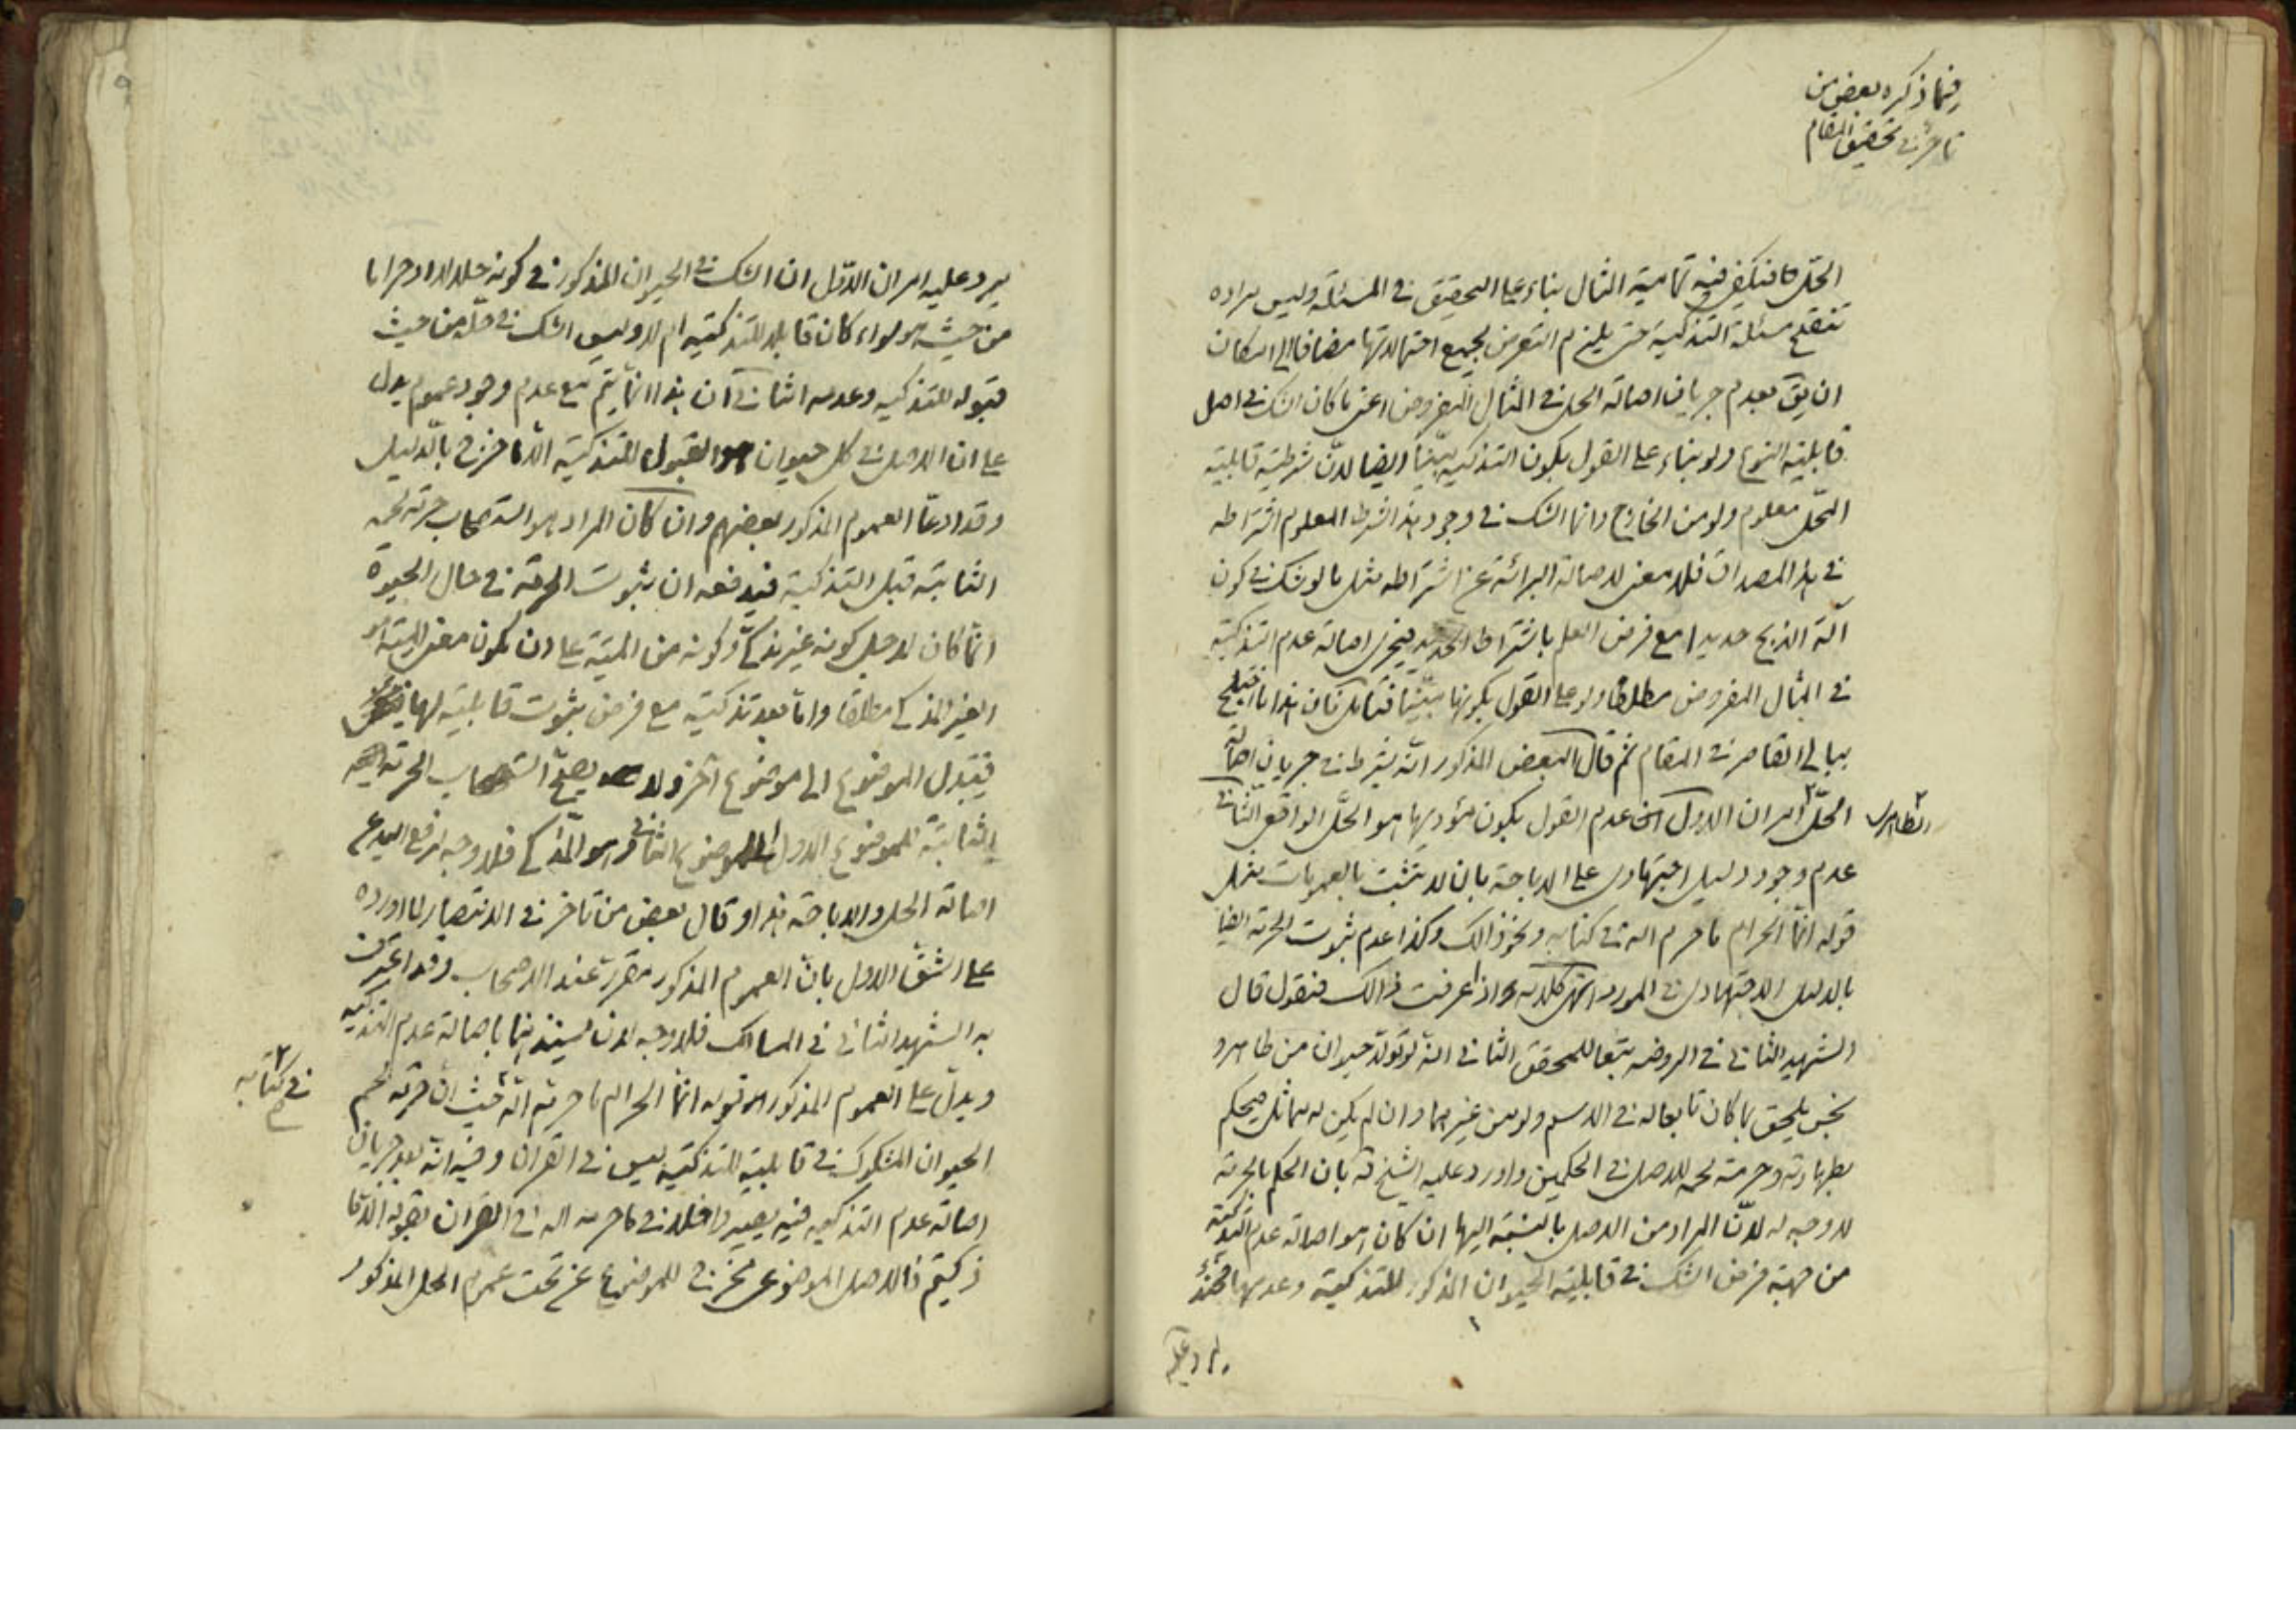 فيما ذكره بعض من
تاخر في تحقيق المقام
الحلّ فيكفي فيه تمامية المثال بناء على التحقيق في المسئلة وليس مراده
تنقيح مسئلة التذكية حتى يلزم التعرض لجميع احتمالاتها مضافا الى امكان
ان يق بعدم جريان اصالة الحل في المثال المفروض اعنى ما كان الشك في اصل
قابلية النوع ولو بناء على القول بكون التذكية بيّنا ايضا لانّ شرطية قابلية
المحل معلوم ولو من الخارج وانما الشك في وجود هذا الشرط المعلوم اشتراطه
في هذا المصداق فلا معنى لاصالة البرائة عن اشتراطه مثل ما لو شك في كون
آلة الذبح حديدا مع فرض العلم باشتراط الحديد فيجرى اصالة عدم التذكية
في المثال المفروض مطلقا ولو على القول بكونها بيّنا فتامل فان هذا ما اختلج
ببالى القاصر في المقام ثم قال البعض المذكور انه يشترط في جريان اصالة
الحلّ امران الاول عدم القول بكون مؤديها هو الحلّ الواقعى الثانى
الظاهرى
عدم وجود دليل اجتهادى على الاباحة بان لا يتثبت بالعمومات مثل
قوله انّما الحرام ما حرم الله في كتابه ونحو ذالك وكذا عدم ثبوت الحرمة ايضا
بالدليل الاجتهادى في المورد انتهى كلامه واذا عرفت ذالك فنقول قال
الشهيد الثانى في الروضه تبعا للمحقق الثانى انه لو تولّد حيوان من طاهر و
نجس يلحق بما كان تابعا له في الاسم ولو من غيرهما وان لم يكن له مماثل فيحكم
بطهارته وحرمة لحمه للاصل في الحكمين واورد عليه الشيخ قه بان الحكم بالحرمة
لا وجه له لانّ المراد من الاصل بالنسبة اليها ان كان هو اصالة عدم التذكية
من جهة فرض الشك في قابلية الحيوان المذكور للتذكية وعدمها فحينئذ
يرد عليه
يرد عليه امران الاول ان الشك في الحيوان المذكور في كونه حلالا او حراما
من حيث هو سواء كان قابلا للتذكيه ام لا وليس الشك في حلّه من حيث
قبوله للتذكيه وعدمه الثانى ان هذا انّما يتم مع عدم وجود عموم يدل
على ان الاصل في كل حيوان هو القبول للتذكية الا ما خرج بالدليل
وقد ادعا العموم المذكور بعضهم وان كان المراد هو استصحاب حرمة لحمه
الثابتة قبل التذكية فيدفعه ان ثبوت الحرمة في حال الحيوة
انّما كان لاجل كونه غير مذكّى وكونه من الميتة على ان يكون معنى الميتة هو
الغير المذكى مطلقا وامّا بعد تذكيته مع فرض ثبوت قابليته لها
فيتبدل الموضوع الى موضوع آخر ولا يصحّ استصحاب الحرمة
الثابتة للموضوع الاول الموضوع الثانى وهو المذكى فلا وجه لرفع اليد عن
اصالة الحل والاباحة هذا وقال بعض من تاخر في الانتصار لما اورده
على الشق الاول بانّ العموم المذكور مقرر عند الاصحاب وقد اعترف
به الشهيد الثانى في المسالك فلا وجه لان يستند باصالة عدم التذكيه
ويدل على العموم المذكور قوله انّما الحرام ما حرمه الله حيث ان حرمة لحم
في كتابه
الحيوان المشكوك في قابليته للتذكيه ليس في القران وفيه انّه بعد جريان
اصالة عدم التذكيه فيه يصير داخلا في ما حرمه الله في القران بقوله الا ما
ذكيتم فالاصل الموضوعى مخرج للموضوع عن تحت عموم الحل المذكور